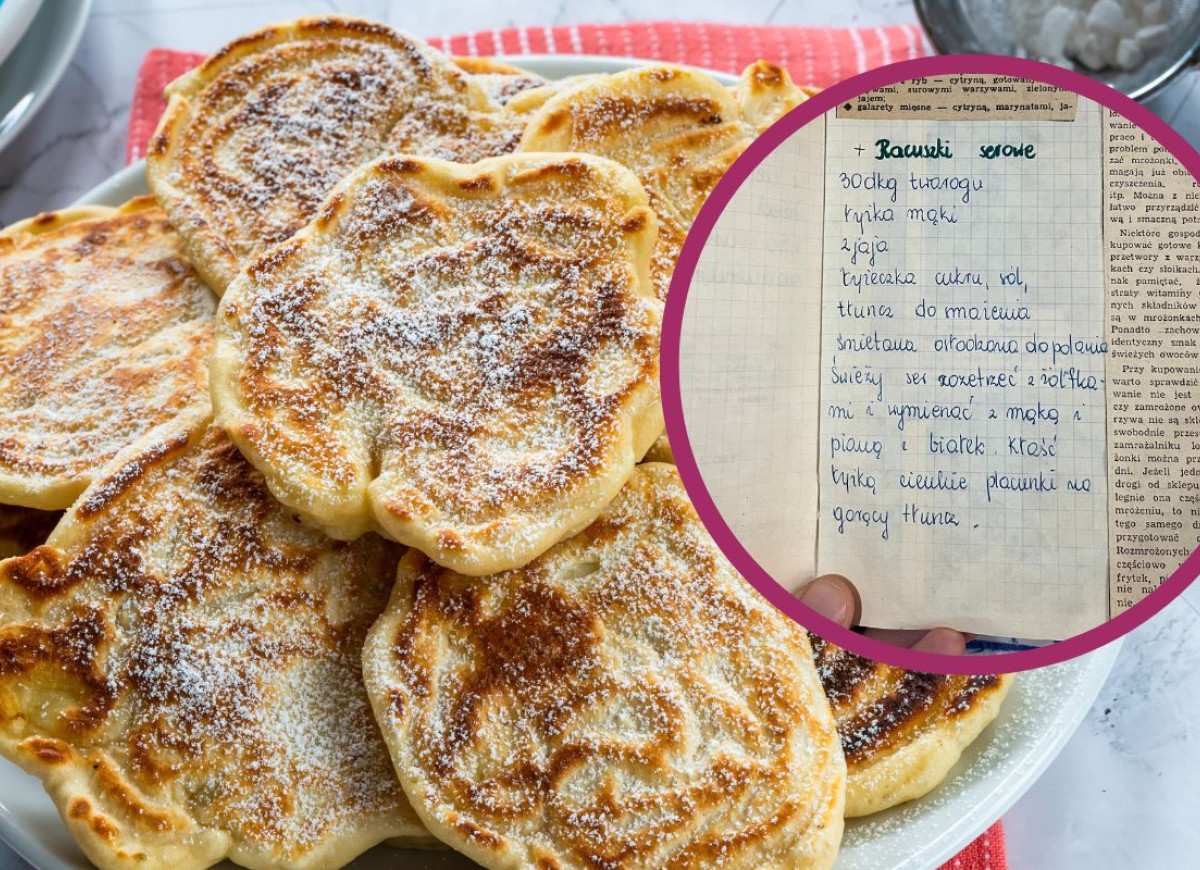 ryb — cytryną,
surowymi warzywami,
jajem;
◆ galarety mięsne — cytryną, marynatami, ja-
+ Racuszki serowe
30dkg twarogu
łyżka mąki
2 jaja
łyżeczka cukru, sól,
tłuszcz do smażenia
śmietana osłodzona do polania
Świeży ser rozetrzeć z żółtka-
mi i wymieszać z mąką i
pianą z białek. Kłaść
łyżką cienkie placuszki na
gorący tłuszcz.
wanie
praco i
problem
zać mrożonki,
magają już
czyszczenia,
itp. Można z
łatwo przyrządzić
wą i smaczną
Niektóre
kupować gotowe
przetwory z
kach czy
nak pamiętać,
straty witaminy
nych składników
są w
Ponadto
identyczny smak
świeżych owoców
Przy
warto
wanie nie jest
czy zamrożone
rzywa nie są
swobodnie
zamrażalniku
żonki można
dni. Jeżeli
drogi od
legnie ona
mrożeniu, to
tego samego
przygotować
Rozmrożonych
częściowo
frytek,
nie
nie